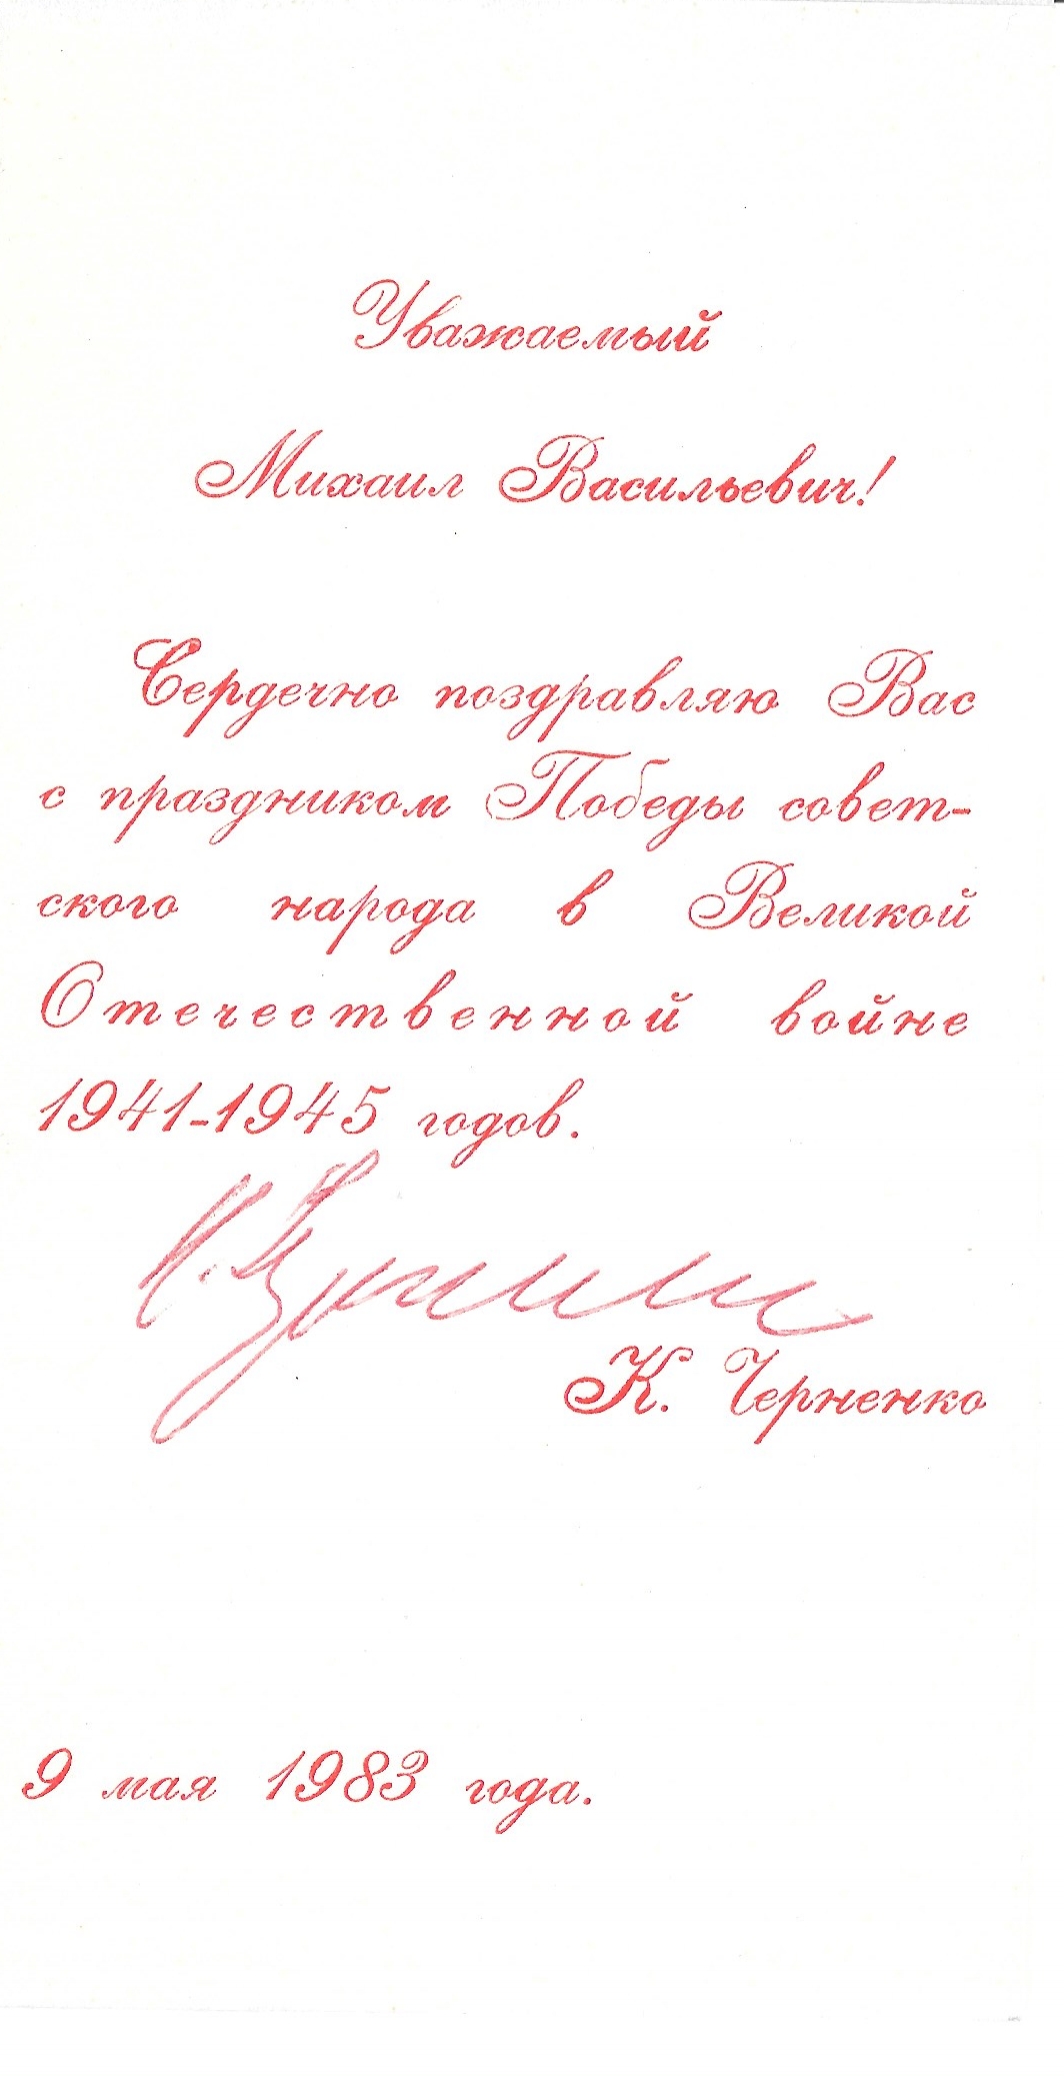 Уважаемый
Михаил Васильевич!
Сердечно поздравляю Вас
с праздником Победы совет-
ского народа в Великой
Отечественной войне
1941-1945 годов.
К. Черненко
9 мая 1983 года.